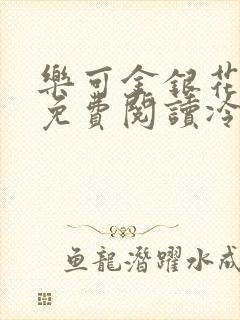 樂可金銀花
免費閱讀冷
鱼龍潛躍水成